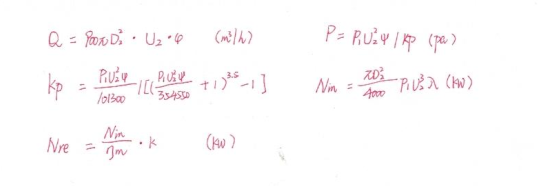 Q = 900πD₂² · U₂ · φ (m³/h)
P = P₁U₂²ψ / kp (pa)
kp = P₁U₂²ψ/101300 / [(P₁U₂²ψ/354550 + 1)^3.5 - 1]
Nin = πD₂²/4000 P₁U₂³λ (kw)
Nre = Nin/ηm · k (kw)